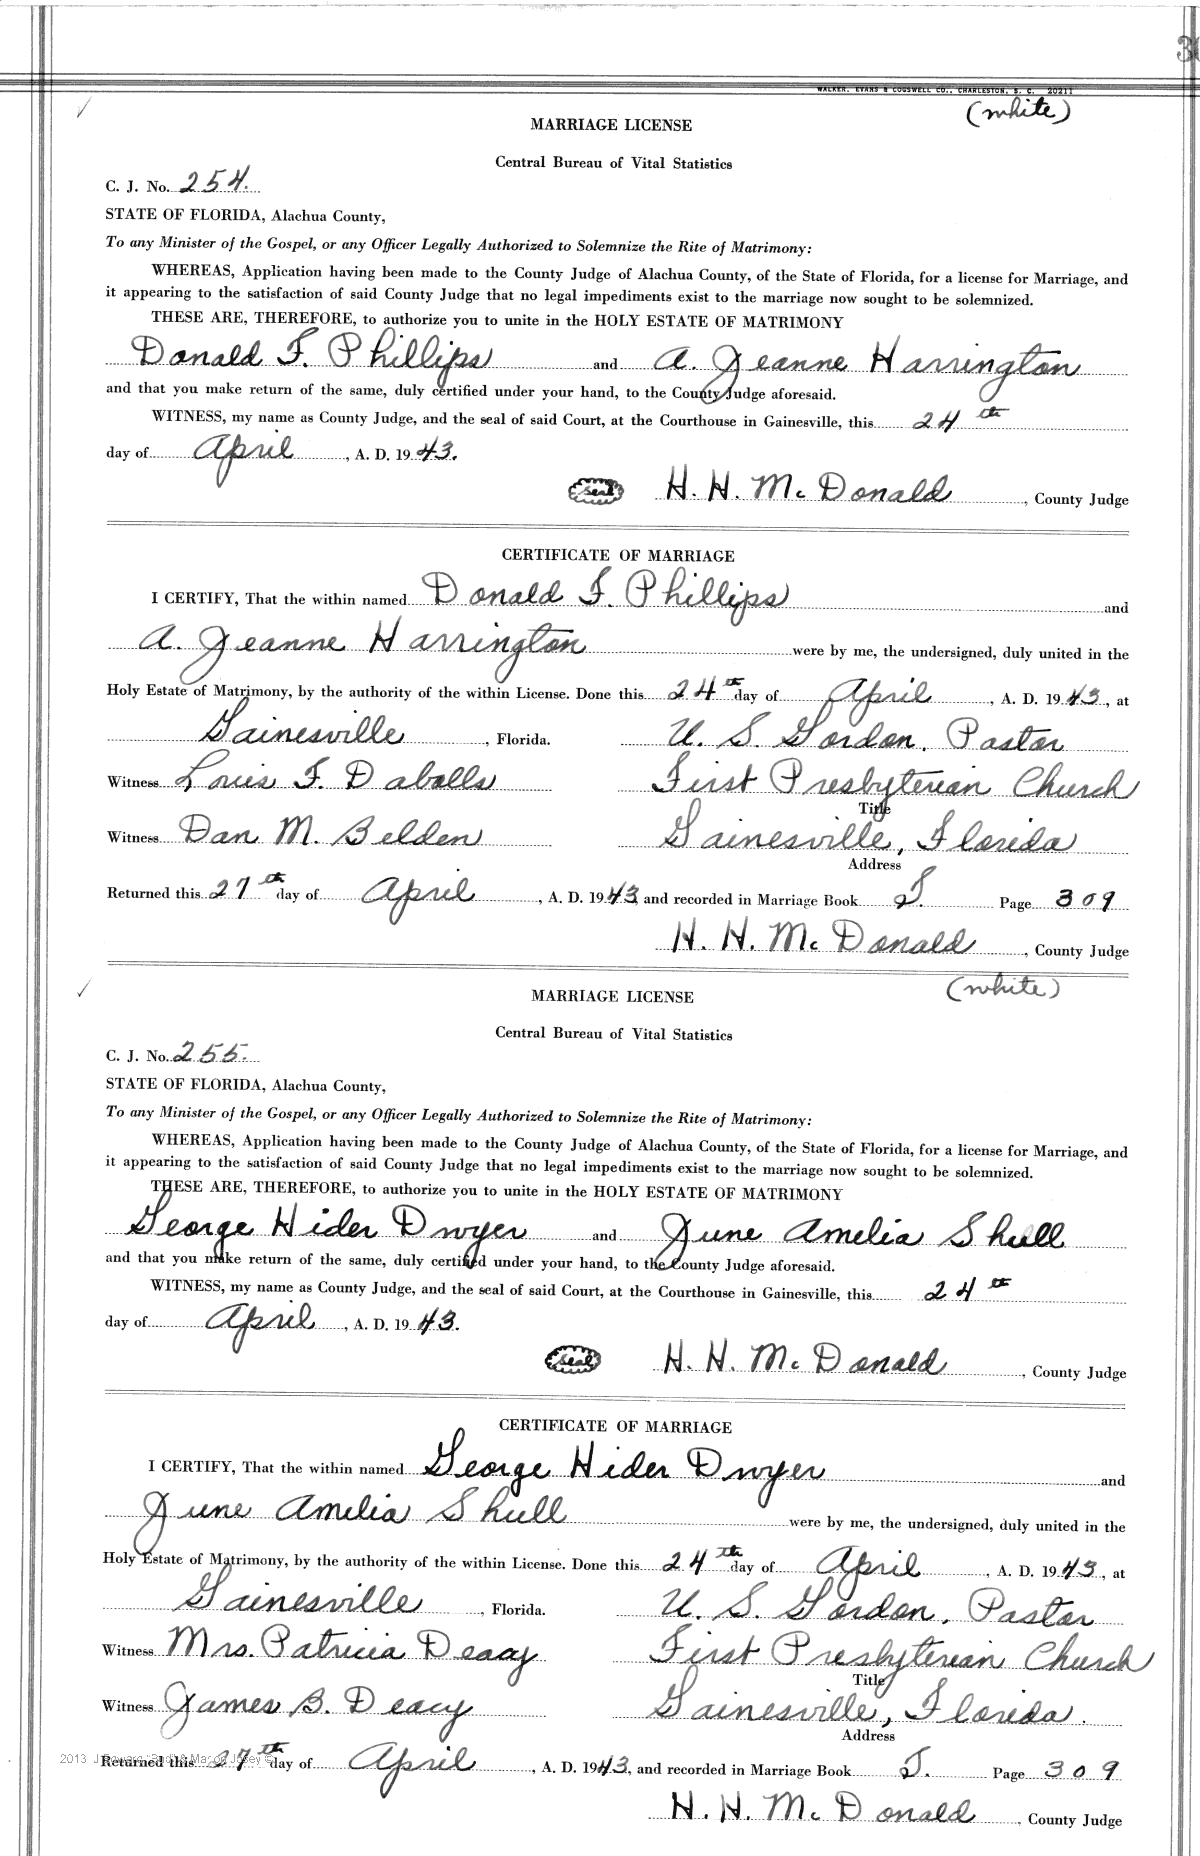 WALKER, EVANS & COGSWELL CO., CHARLESTON, S. C. 20211
(white)
MARRIAGE LICENSE
Central Bureau of Vital Statistics
C. J. No. 254.
STATE OF FLORIDA, Alachua County,
To any Minister of the Gospel, or any Officer Legally Authorized to Solemnize the Rite of Matrimony:
WHEREAS, Application having been made to the County Judge of Alachua County, of the State of Florida, for a license for Marriage, and
it appearing to the satisfaction of said County Judge that no legal impediments exist to the marriage now sought to be solemnized.
THESE ARE, THEREFORE, to authorize you to unite in the HOLY ESTATE OF MATRIMONY
Donald F. Phillips and A. Jeanne Harrington
and that you make return of the same, duly certified under your hand, to the County Judge aforesaid.
WITNESS, my name as County Judge, and the seal of said Court, at the Courthouse in Gainesville, this 24th
day of April, A. D. 1943.
Seal H. H. McDonald, County Judge
CERTIFICATE OF MARRIAGE
I CERTIFY, That the within named Donald F. Phillips and
A. Jeanne Harrington were by me, the undersigned, duly united in the
Holy Estate of Matrimony, by the authority of the within License. Done this 24th day of April, A. D. 1943, at
Gainesville, Florida. U. S. Gordon, Pastor
Witness Louis F. Daballs First Presbyterian Church
Title
Witness Dan M. Belden Gainesville, Florida
Address
Returned this 27th day of April, A. D. 1943, and recorded in Marriage Book T. Page 309
H. H. McDonald, County Judge
(white)
MARRIAGE LICENSE
Central Bureau of Vital Statistics
C. J. No. 255.
STATE OF FLORIDA, Alachua County,
To any Minister of the Gospel, or any Officer Legally Authorized to Solemnize the Rite of Matrimony:
WHEREAS, Application having been made to the County Judge of Alachua County, of the State of Florida, for a license for Marriage, and
it appearing to the satisfaction of said County Judge that no legal impediments exist to the marriage now sought to be solemnized.
THESE ARE, THEREFORE, to authorize you to unite in the HOLY ESTATE OF MATRIMONY
George Hider Dwyer and June Amelia Shull
and that you make return of the same, duly certified under your hand, to the County Judge aforesaid.
WITNESS, my name as County Judge, and the seal of said Court, at the Courthouse in Gainesville, this 24th
day of April, A. D. 1943.
Seal H. H. McDonald, County Judge
CERTIFICATE OF MARRIAGE
I CERTIFY, That the within named George Hider Dwyer and
June Amelia Shull were by me, the undersigned, duly united in the
Holy Estate of Matrimony, by the authority of the within License. Done this 24th day of April, A. D. 1943, at
Gainesville, Florida. U. S. Gordon, Pastor
Witness Mrs. Patricia Deacy First Presbyterian Church
Title
Witness James B. Deacy Gainesville, Florida.
Address
Returned this 27th day of April, A. D. 1943, and recorded in Marriage Book T. Page 309
H. H. McDonald, County Judge